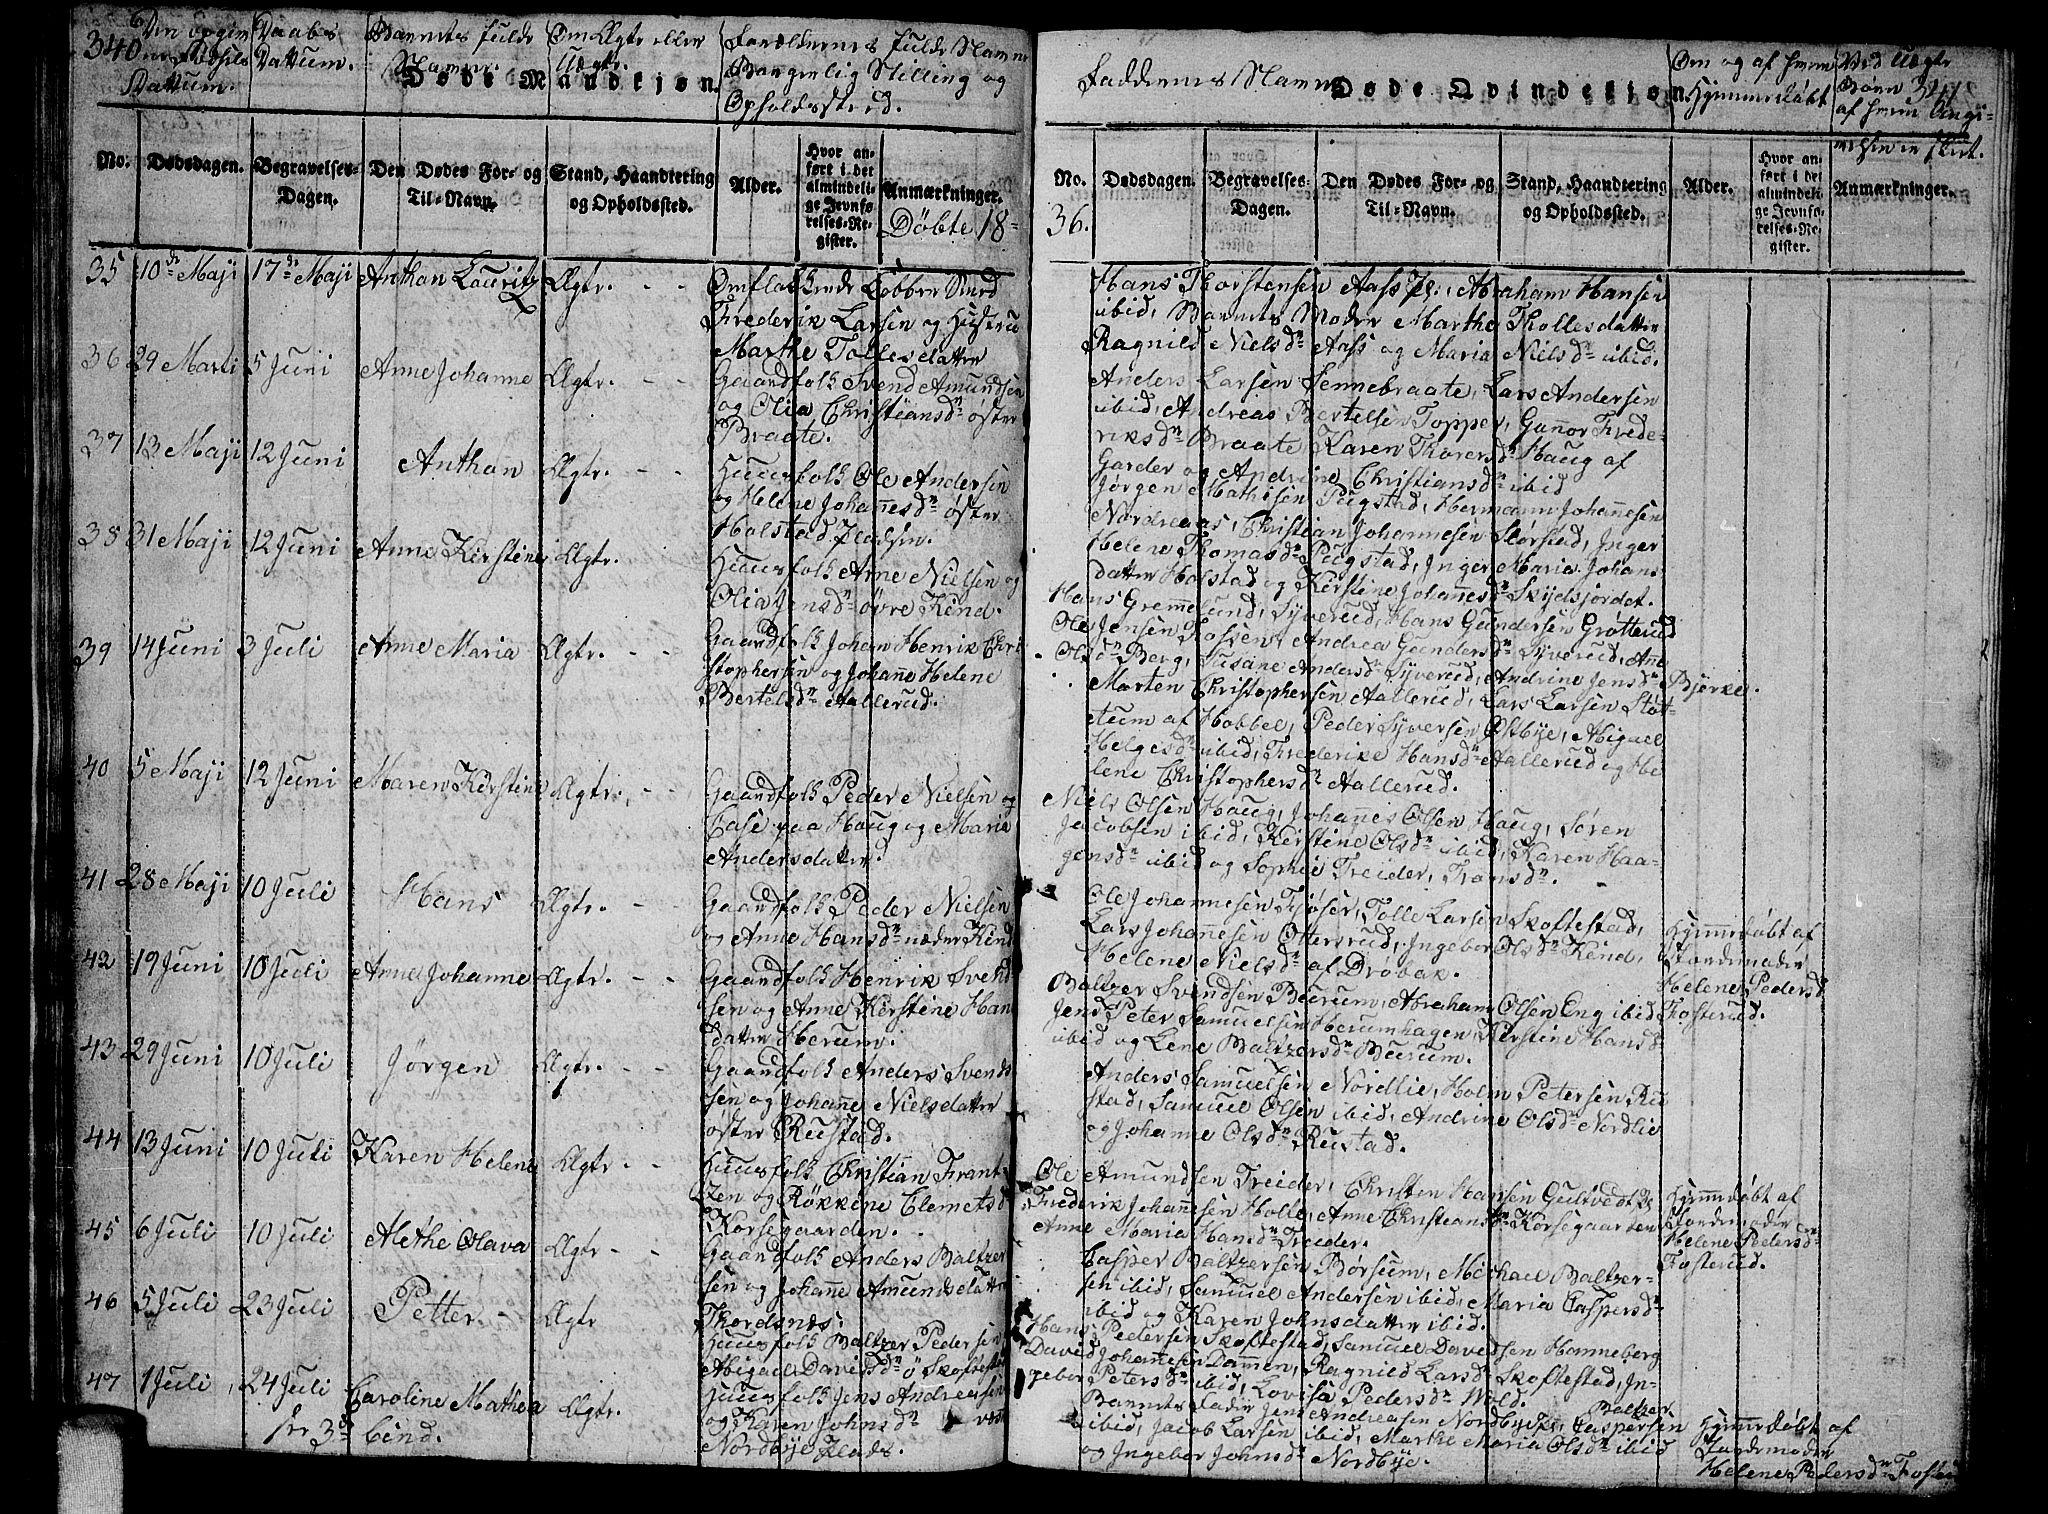 340
Den opgivne Fødsels Dattum.
Daabs Dattum.
Barnets fulde Navne.
Om Ægte eller Uægte.
Forældrenes fulde Navne Borgerlig Stilling og Opholdssted.
Døde Mandkjøn.
No.
Dødsdagen.
Begravelses-Dagen.
Den Dødes For- og Til-Navn.
Stand, Haandtering og Opholdssted.
Alder.
Hvor anført i det almindelige Jevnførelses-Register.
Anmærkninger.
Døbte 18
35 10de Maji 17de Maji Anthon Lauritz Ægte. - - Omflakkende Kobber Smed
Frederik Larsen og Hustru
Marthe Tollesdatter
36 29 Marti 5 Juni Anne Johanne Ægte. - - Gaardfolk Svend Amundsen
og Olia Christiansdn øster
Braate.
37 13 Maji 12 Juni Anthon Ægte. - - Huusfolk Ole Andersen
og Helene Johannesdn øster
Holstad Pladsen.
38 31 Maji 12 Juni Anne Kirstine Ægte. Huusfolk Arne Nielsen og
Olia Jensdn øvre Kind.
39 14 Juni 3 Juli Anne Maria Ægte. - - Gaardfolk Johan Henrik Chri
stophersen og Johanne Helene
Bertelsdn Aallerud.
40 5 Maji 12 Juni Maren Kirstine Ægte. - - Gaardfolk Peder Nielsen og
paa Haug og Maria
Andersdatter.
41 28 Maji 10 Juli Hans Ægte. - - Gaardfolk Peder Nielsen
og Anne Hansdn nedre Kind
42 19 Juni 10 Juli Anne Johanne Ægte. - - Gaardfolk Henrik Svend
sen og Anne Kirstine Han
datter Herum.
43 29 Juni 10 Juli Jørgen Ægte. - - Gaardfolk Anders Svend
sen og Johanne Nielsdatter
øster Rustad.
44 13 Juni 10 Juli Karen Helene Ægte. - - Huusfolk Christian Frant
zen og Røkkine Clemetsd
Korsegaarden.
45 6 Juli 10 Juli Alethe Olava Ægte - - Gaardfolk Anders Baltzer
sen og Johanne Amundsdatter
Thordsnæs.
46 5 Juli 23 Juli Petter - Ægte Huusfolk Baltzer Pedersen
Abigael Davidsdn ö Skoftestad
47 1 Juli 24 Juli Caroline Mathea Ægte. Huusfolk Jens Andreasen
og Karen Johnsdn vest
Nordbye Plads.
ser 3de bind.
Faddernes Navne
Døde Qvindekjøn.
Om og af hvem Hjemmedøbt
Ved Uægte Børn
af hvem Angi-
velsen er skeet.
341
No.
36.
Dødsdagen.
Begravelses-Dagen.
Den Dødes For- og Til-Navn.
Stand, Haandtering og Opholdssted.
Alder.
Hvor anført i det almindelige Jevnførelses-Register.
Anmærkninger.
Hans Thorstensen Aass Pl., Abraham Hansen
ibid, Barnets Moder Marthe Thollesdatter
Ragnild Nielsdn Aass og Maria Nielsdn ibid.
Anders Larsen Sennebraate, Lars Andersen
ibid, Andreas Bertelsen Topper, Gunor Frede-
riksdn Braate Karen Thorersdn Haug af
Garder og Andrine Christiansdn ibid
Jørgen Mathisen Pugstad, Hermann Johannesen
Nordreaas, Christian Johannesen Storstad, Inger
Helene Thomasdn Pugstad, Inger Maria Johans
datter Holstad og Kirstine Johannesdn Skydsjordet.
Hans Gremmesund, Syverud, Hans Gundersen Grotterud
Ole Jensen Fossen, Andrea Gundersdn Syverud, Anne
Olsdn Berg, Susane Andersdn Syverud, Andrine Jensdn Bjerke.
Marten Christophersen Aallerud, Lars Larsen Støt-
tum af Hobbel, Peder Syversen Østbye, Abigael
Helgesdn ibid, Frederike Hansdn Aallerud og He
lene Christophersdn Aallerud.
Niels Olsen Haug, Johannes Olsen Haug, Søren
Jacobsen ibid, Kirstine Olsdn ibid, Karen Haa-
gensdn ibid og Sophie Treider, Fransdn.
Ole Johannesen Fjøser, Tolle Larsen Skoftestad,
Lars Johannesen Ottersrud, Ingebor Olsdn Kind,
Helene Nielsdn af Drøbak.
Hjemmedøbt af
Jordemoder
Helene Pedersd
Fosterud.
Baltzer Svendsen Buerum, Abraham Olsen Eng ibid
Jens Peter Samuelsen Herumhagen, Kirstine Hansd
ibid og Lene Baltzersdn Buerum.
Anders Samuelsen Nordlie, Holm Petersen Ru
stad, Samuel Olsen ibid, Andrine Olsdn Nordlie
og Johanne Olsdn Rustad.
Ole Amundsen Treider, Christen Hansen Gultvedt Pl
Frederik Johanesen Holle, Anne Christiansdn Korsegaarden
Anne Maria Hansdn Treider.
Hjemmedøbt af
Jordemoder
Helene Pedersdn
Fosterud.
Casper Baltzersen Børsum, Michael Baltzer-
sen ibid, Samuel Andersen ibid, Maria Caspersdn
ibid og Karen Johnsdatter ibid.
Hans Pedersen Skoftestad, Samuel Davidsen Hanneberg
David Johannesen Dammen, Ragnild Larsdn Skoftestad, In-
gebor Petersdn ibid, Lovisa Pedersdn Wold.
Barnets Fader Jens Andreasen Nordbye, Baltzer Caspersen
ibid, Jacob Larsen ibid, Marthe Maria Olsdn ibid
og Ingebor Johnsdn Nordbye.
Hjemmedøbt af
Jordemoder
Helene Pedersdn Foster